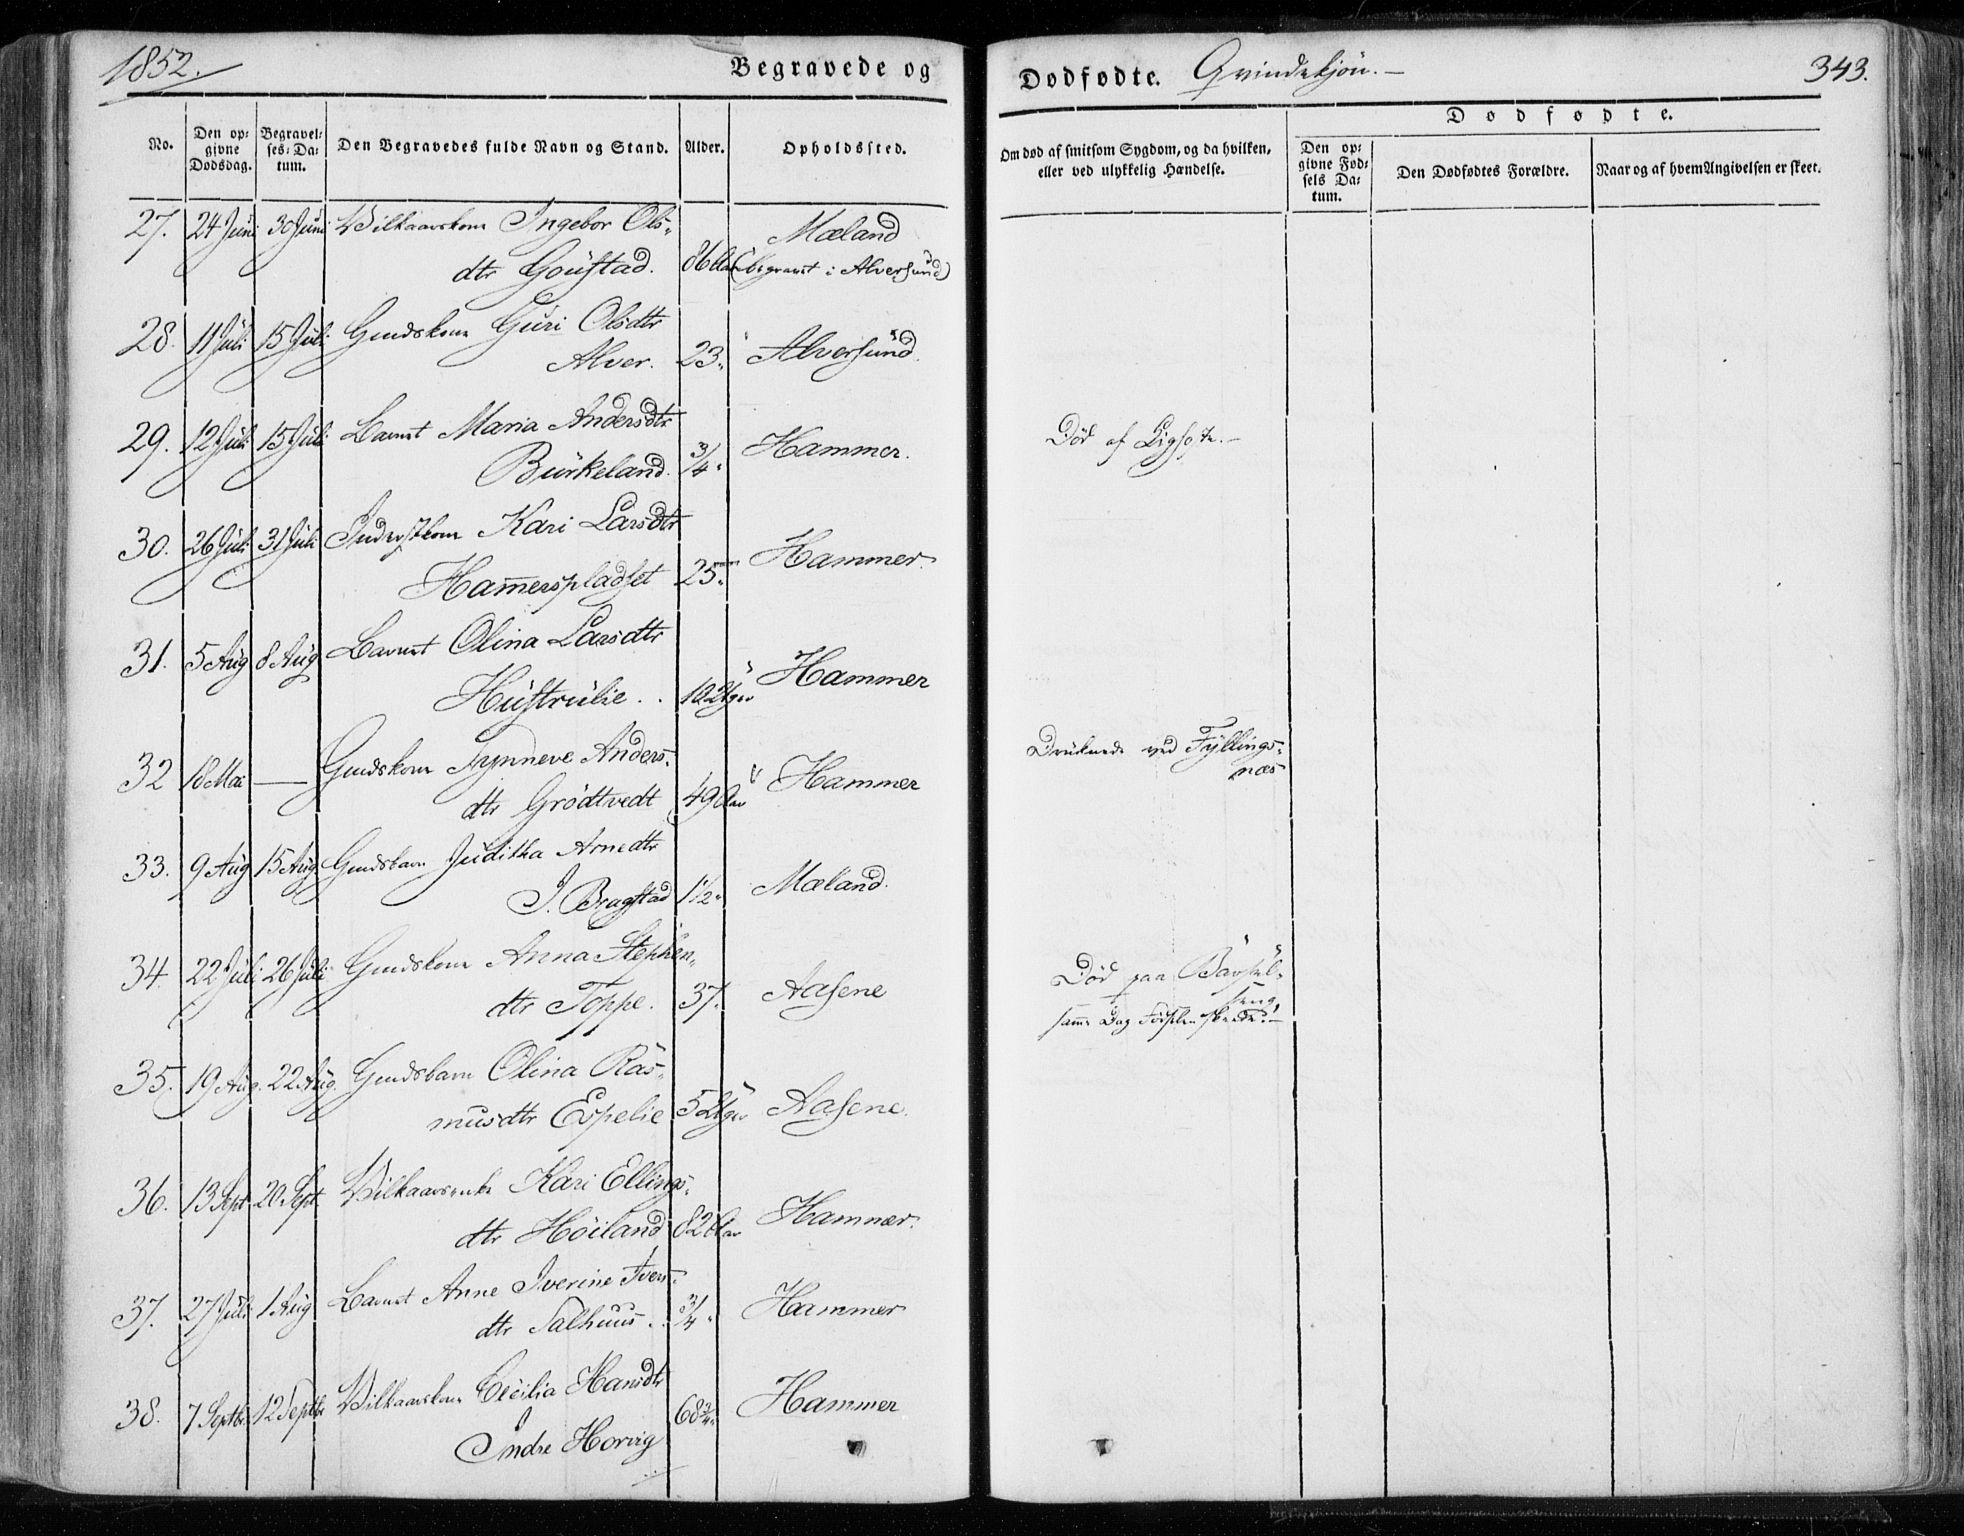 1852.
Begravede og
Dødfødte. Qvindekjön.
343.
Dødfødte.
No.
Den op-
givne
Dødsdag.
Begravel-
ses-Da-
tum.
Den Begravedes fulde Navn og Stand.
Alder.
Opholdssted.
Om død af smitsom Sygdom, og da hvilken,
eller ved ulykkelig Hændelse.
Den op-
givne Fød-
sels Da-
tum.
Den Dødfødtes Forældre.
Naar og af hvem Angivelsen er skeet.
27. 24 Juni 30 Juni Vilkaarskone Ingebor Ols-
dtr Goustad. 86 Aar Mæland
(begravet i Alversund)
28. 11 Juli 15 Juli Gmdskone Guri Olsdtr
Alver. 23. Alversund.
29. 12 Juli 15 Juli Barnet Maria Andersdtr
Burkeland. 3/4 Hammer. Död af
30. 26 Juli 31 Juli Inderstkone Kari Larsdtr
Hammerspladset 25. Hammer.
31. 5 Aug 8 Aug Barnet Olina Larsdtr
Hustrulie . . 10 Uger Hammer
32 18 Mai — Gmdskone Synneve Anders-
dtr Grödtvedt 49 Aar Hammer
Druknede ved Fyllings-
næs
33. 9 Aug 15 Aug. Gmdsbarn Juditha Arnedtr
I. Bragstad 1 1/2 Mæland.
34. 22 Juli 26 Juli Gmdskone Anna Stephen-
dtr Toppe. 37. Aasene
Död paa Barsel-
seng,
samme Dag Födselen skeede.
35. 19 Aug. 22 Aug. Gmdsbarn Olina Ras-
musdtr Espelie 5 Uger Aasene.
36. 13 Sept 20 Sept. Vilkaarsenke Kari Ellings-
dtr Höiland 82 Aar Hammer.
37. 27 Juli 1 Aug Barnet Anne Iverine Ivers-
dtr Salhuus . . 3/4 Hammer
38. 7 Septbr 12 Septbr Vilkaarskone Cecilia Hansdtr
Indre Horvig 68 3/4 Hammer